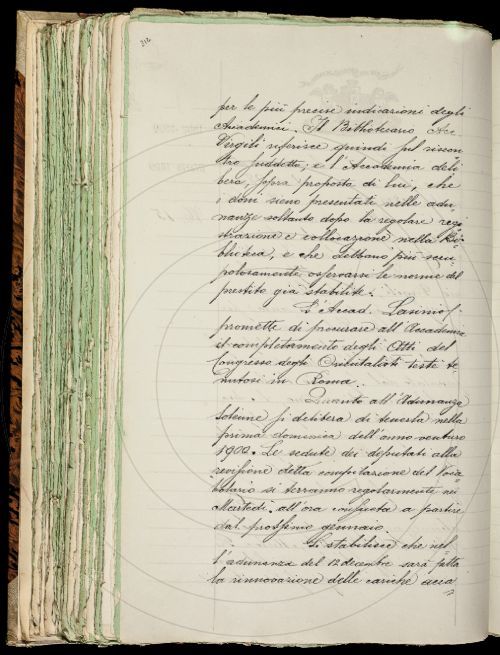 212
per le più precise indicazioni degli
Accademici. Il Bibliotecario Acc.
Vergili riferisce quindi sul riscon
tro suddetto, e l'Accademia deli
bera, sopra proposta di lui, che
i doni sieno presentati nelle adu
nanze soltanto dopo la regolare regi
strazione e collocazione nella Bi
blioteca, e che debbano più scru
polosamente osservarsi le norme del
prestito già stabilite.
L'Accad. Lasinio
promette di procurare all'Accademia
il completamento degli Atti del
Congresso degli Orientalisti testè te
nutosi in Roma.
Quanto all'Adunanza
Solenne si delibera di tenerla nella
prima domenica dell'anno venturo
1900. Le sedute dei deputati alla
revisione della compilazione del Voca
bolario si terranno regolarmente nei
Martedì all'ora consueta a partire
dal prossimo gennaio.
Si stabilisce che nel
l'adunanza del 12 decembre sarà fatta
la rinnovazione delle cariche acca